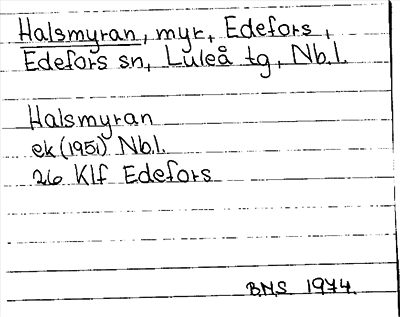 Halsmyran, myr, Edefors,
Edefors sn, Luleå tg, Nb.l.
Halsmyran
ek (1951) Nb.l.
26 Klf Edefors
BNS 1974.